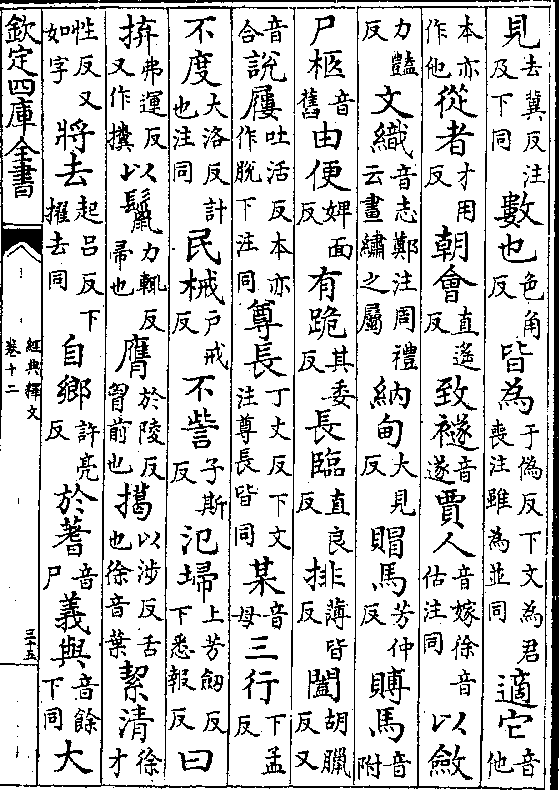 見去冀反注及下同數也色角反皆為于偽反下文為君喪注雖為並同適它音他
本亦作他從者才用反朝會直遙反致襚音遂賈人音嫁徐音估注同以斂
力豔反文織音志鄭注周禮云畫繡之屬納甸大見反賵馬芳仲反賻馬音附
尸柩音舊由便婢面反有跪其委反長臨直良反排薄皆反闔胡臘反又
音合說屨吐活反本亦作脫下注同尊長丁丈反下文注尊長皆同某音母三行下孟反
不度大洛反計也注同民械戶戒反不訾子斯反氾埽上芳劒反下悉報反曰
拚弗運反又作以鬣力輒反帚也膺於陵反胷前也擖以涉反舌也徐音葉絜清徐才
性反又如字將去起呂反下擢去同自鄉許亮反於蓍音尸義與音餘下同大
欽定四庫全書
經典釋文
卷十二
三十五